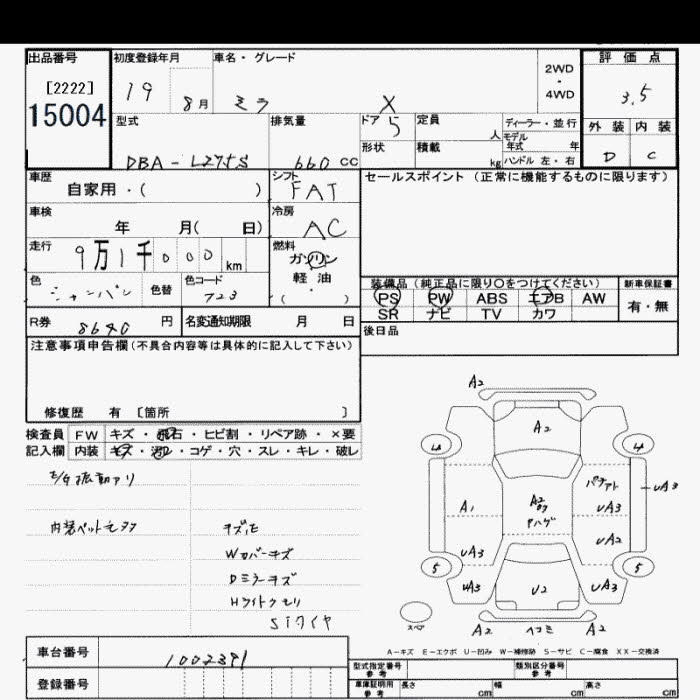 出品番号
[2222]
15004
初度登録年月
19 8月
車名・グレード
ミラ X
2WD
・
4WD
評価点
3.5
外装 内装
D C
型式
DBA-L275S
排気量
660 cc
ドア 5
形状
定員 人
積載 kg
ディーラー・並行
モデル年式 年
ハンドル 左・右
車歴
自家用・( )
シフト
FAT
セールスポイント (正常に機能するものに限ります)
車検
年 月( 日)
冷房
AC
走行
9万1千000km
燃料
ガソリン
軽油
・
( )
色
シャンパン
色替
色コード
T23
装備品(純正品に限り○をつけてください)
PS PW ABS エアB AW
SR ナビ TV カワ
新車保証書
有・無
R券 8640 円
名変通知期限 月 日
後日品
注意事項申告欄(不具合内容等は具体的に記入して下さい)
修復歴 有 〔箇所 〕
検査員 FW キズ・飛石・ヒビ割・リペア跡・×要
記入欄 内装 キズ・汚レ・コゲ・穴・スレ・キレ・破レ
E/G振動アリ
キズ凹
Wカバーキズ
Dミラーキズ
Hライトクモリ
Sタイヤ
A2
A2
4 4
A1
A2
UA3
UA3
UA2
UA3
UA3
UA3
5 5
U2
スペア
A2 ヘコミ A2
A-キズ E-エクボ U-凹み W-補修跡 S-サビ C-腐食 XX-交換済
車台番号
1002391
登録番号
型式指定番号
参考
類別区分番号
参考
車庫証明用
参考
長さ cm
幅 cm
高さ cm